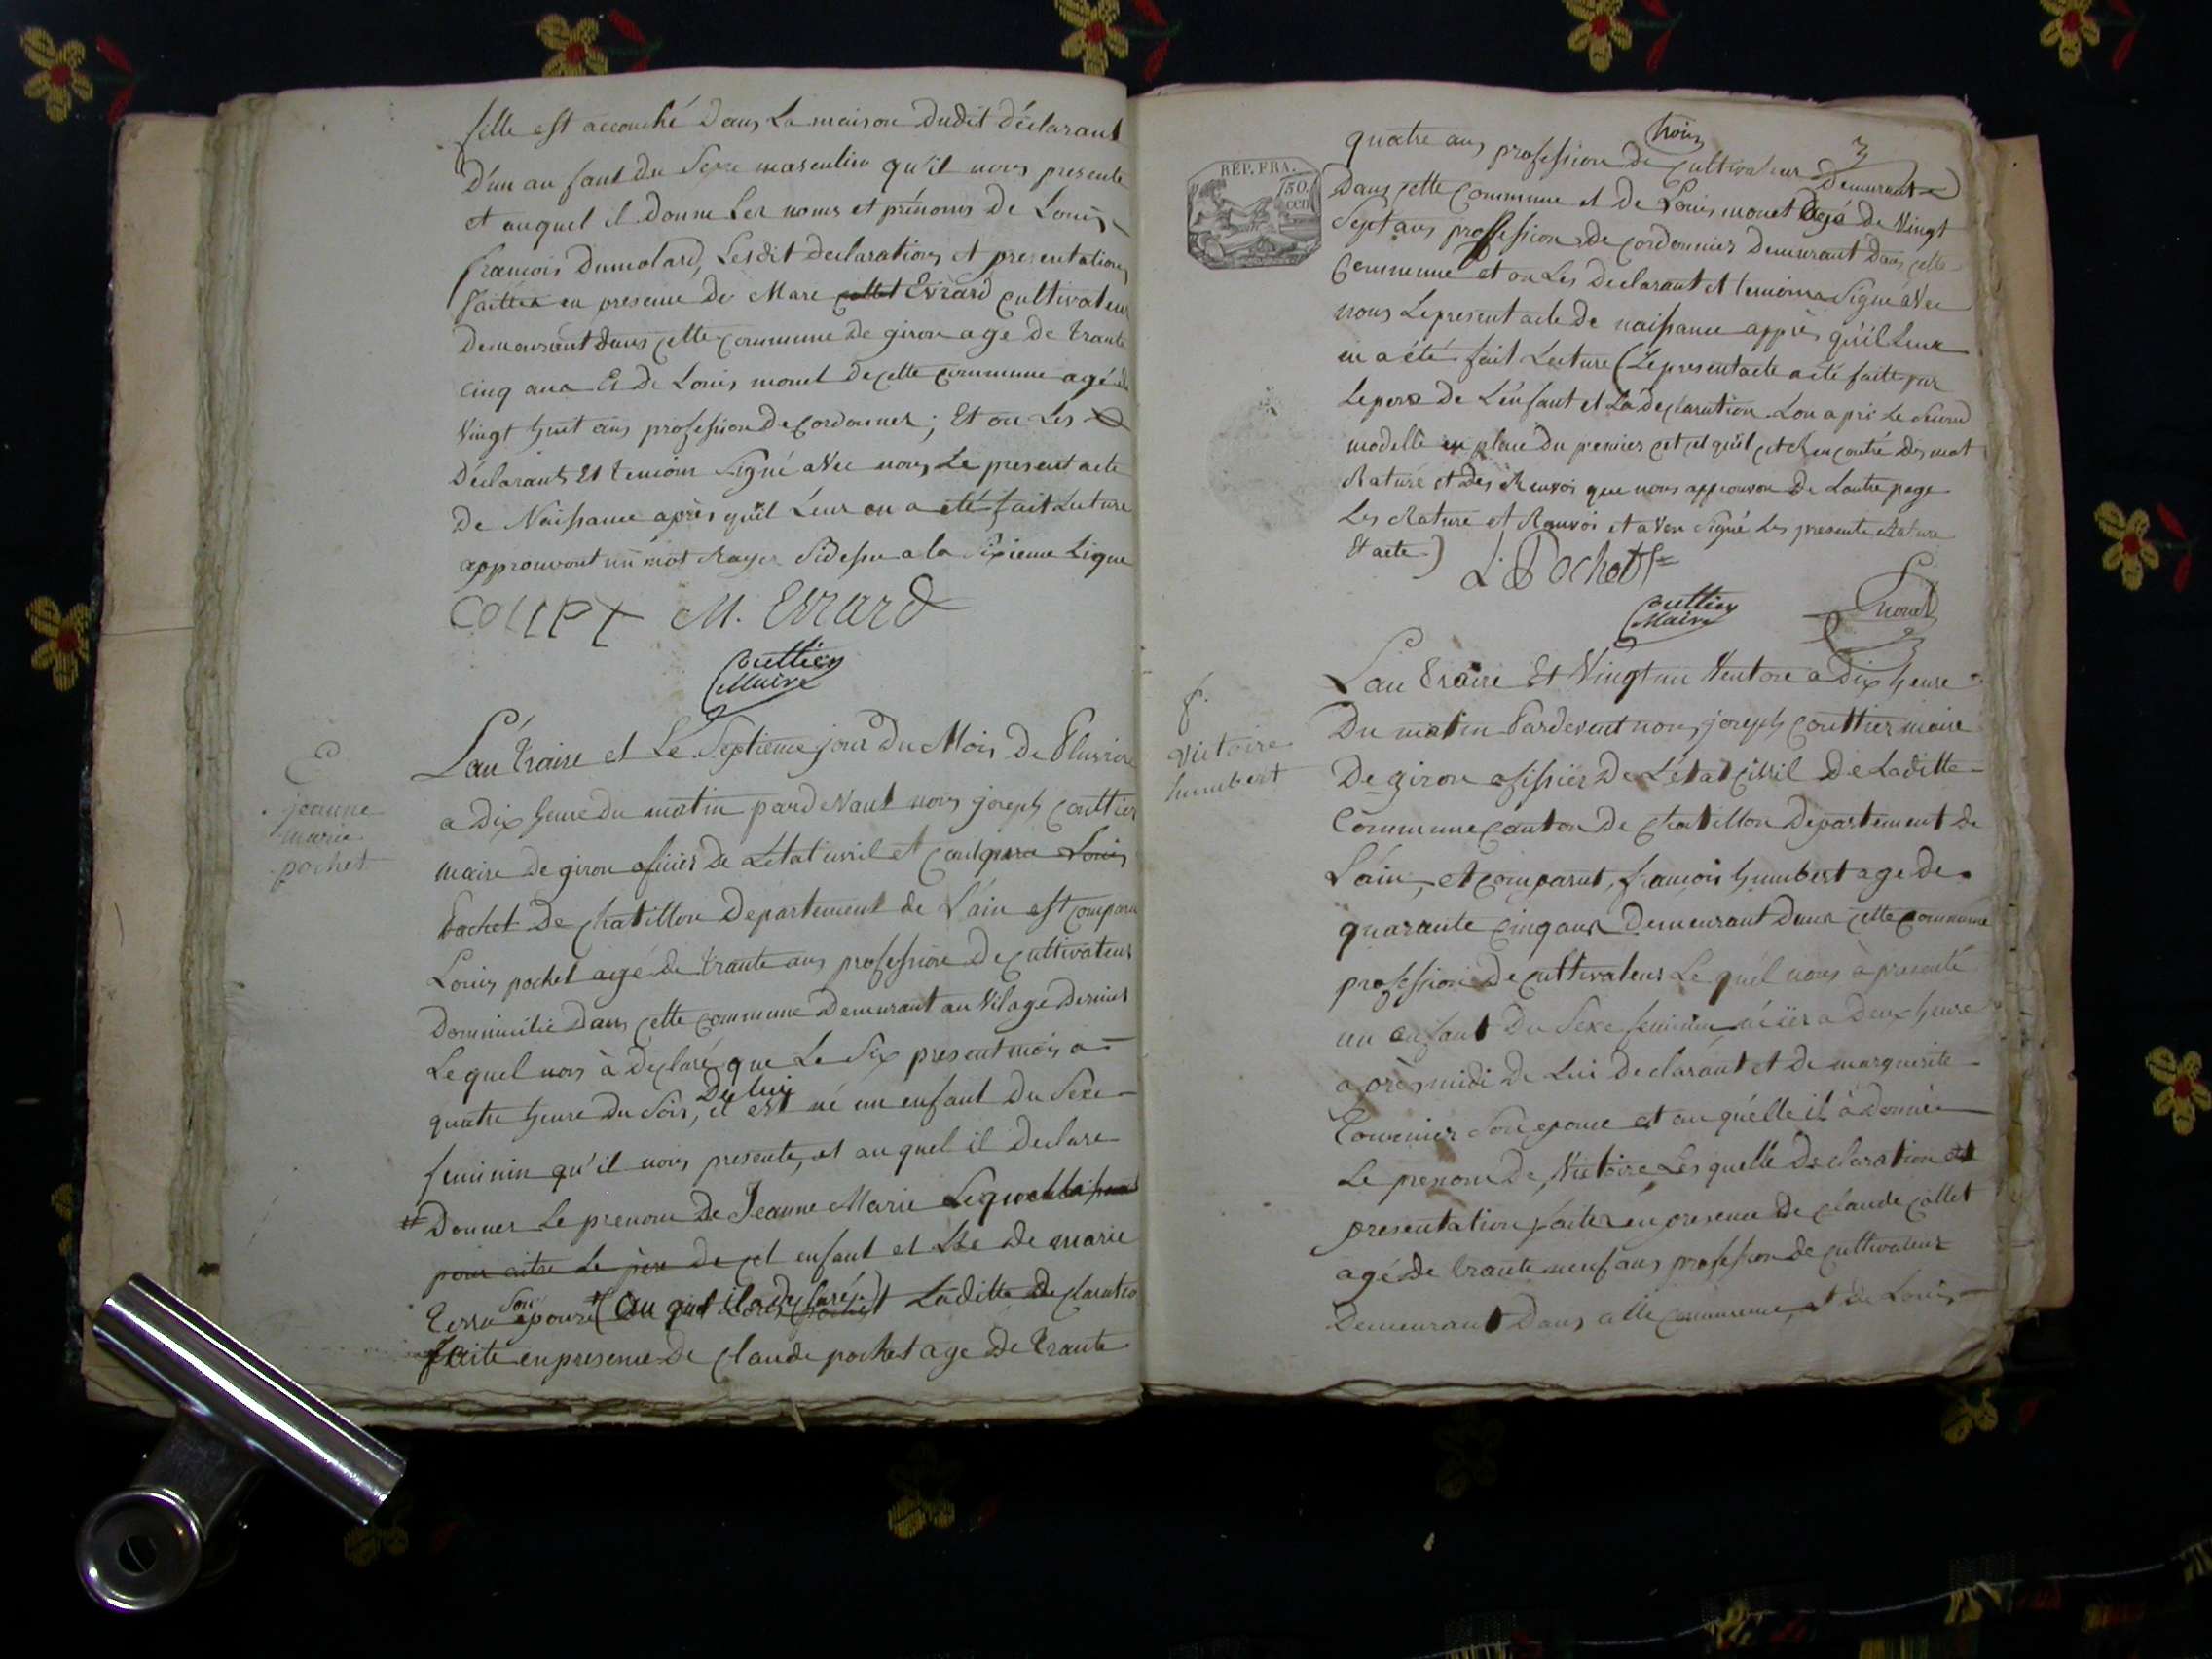 fille est accouché Dans La maison Dudit déclarant
D'un anfant Du Sexe masculin qu'il nous presente
et auquel il Donne Les noms et prénoms de Louis
francois Dumolard, Lesdit declarations et presentations
faittes en presence de Marc collet Evrard cultivateur
Demeurant dans cette commune de giron age de trante
cinq ans Et De Louis monet de cette commune agé de
Vingt huit ans profession De cordonier ; Et on Les
Déclarants Et temoins Signé aVec nous Le present acte
de Naissance après qu'il Leur en a été fait Lecture
approuvont un mot Rayer Sidessu a la Sixieme Ligne
M. Evrard
Couttier
Maire
jeanne
marie
pochet
L'an traize et Le Septieme jour Du Mois De Pluviose
a Dix heure du matin pardeVant nous joseph Couttier
maire de giron oficier de Létat civil et Louis
Pachet De chatillon Departement de L'ain est comparu
Louis pochet agé de trante ans profession De cultivateur
Dommicilié dans cette commune Demeurant au Vilage Dernier
Le quel nous à Déclaré que Le Six present mois a
quatre heure Du Soir, il est né un enfant Du Sexe
De lui
feminin qu'il nous presente, et au quel il Declare
Donner Le prenom de Jeanne Marie Lequel
pour aitre Le père de cet enfant et de marie
Son epouse (au quel il a declaré) Laditte Declaration
faite en presence de Claude pochet age De trante
REP. FRA.
50.
cen
quatre ans profession De cultivateur Demeurant
trois
Dans cette commune et de Louis monet agé de Vingt
Sept ans profession de cordonnier Demeurant Dans cette
commune et on Les Declarant et temoins Signé aVec
nous Le present acte de naissance apprès qu'il Leur
en a été fait Lecture (Le present acte a cté faite par
Le pere de L'enfant et La declaration Lon a pri Le Second
modelle en place Du premier cet qu'il rencontré Des mot
Rature et des Renvoi que nous approuvon De Lautre page
Les Rature et Ranvoi et aVon Signé Les presente Rature
Et acte)
L. Pochet
Couttier
Maire
monet
f.
Victoire
humbert
Lan traize Et Vingt un Ventose a Dix heure
Du matin Pardevent nous joseph Couttier maire
De giron ofissier De L'état civil de Laditte
Commune canton de chatillon Departement de
L'ain, et comparut, francois humbert age de
quarante cinq ans Demeurant Dans cette commune
profession De cultivateur Le quel nous à presenté
un enfant Du Sexe feminin né ier a Deux heure
aprèsmidi de Lui Declarant et de marguerite
Son epouse et au quelle il à Donnée
Le prenom De Victoire Les quelle Declaration et
presentation faites en presence de claude collet
agé De trante neuf ans profession de cultivateur
Demeurant Dans cette commune, et de Louis